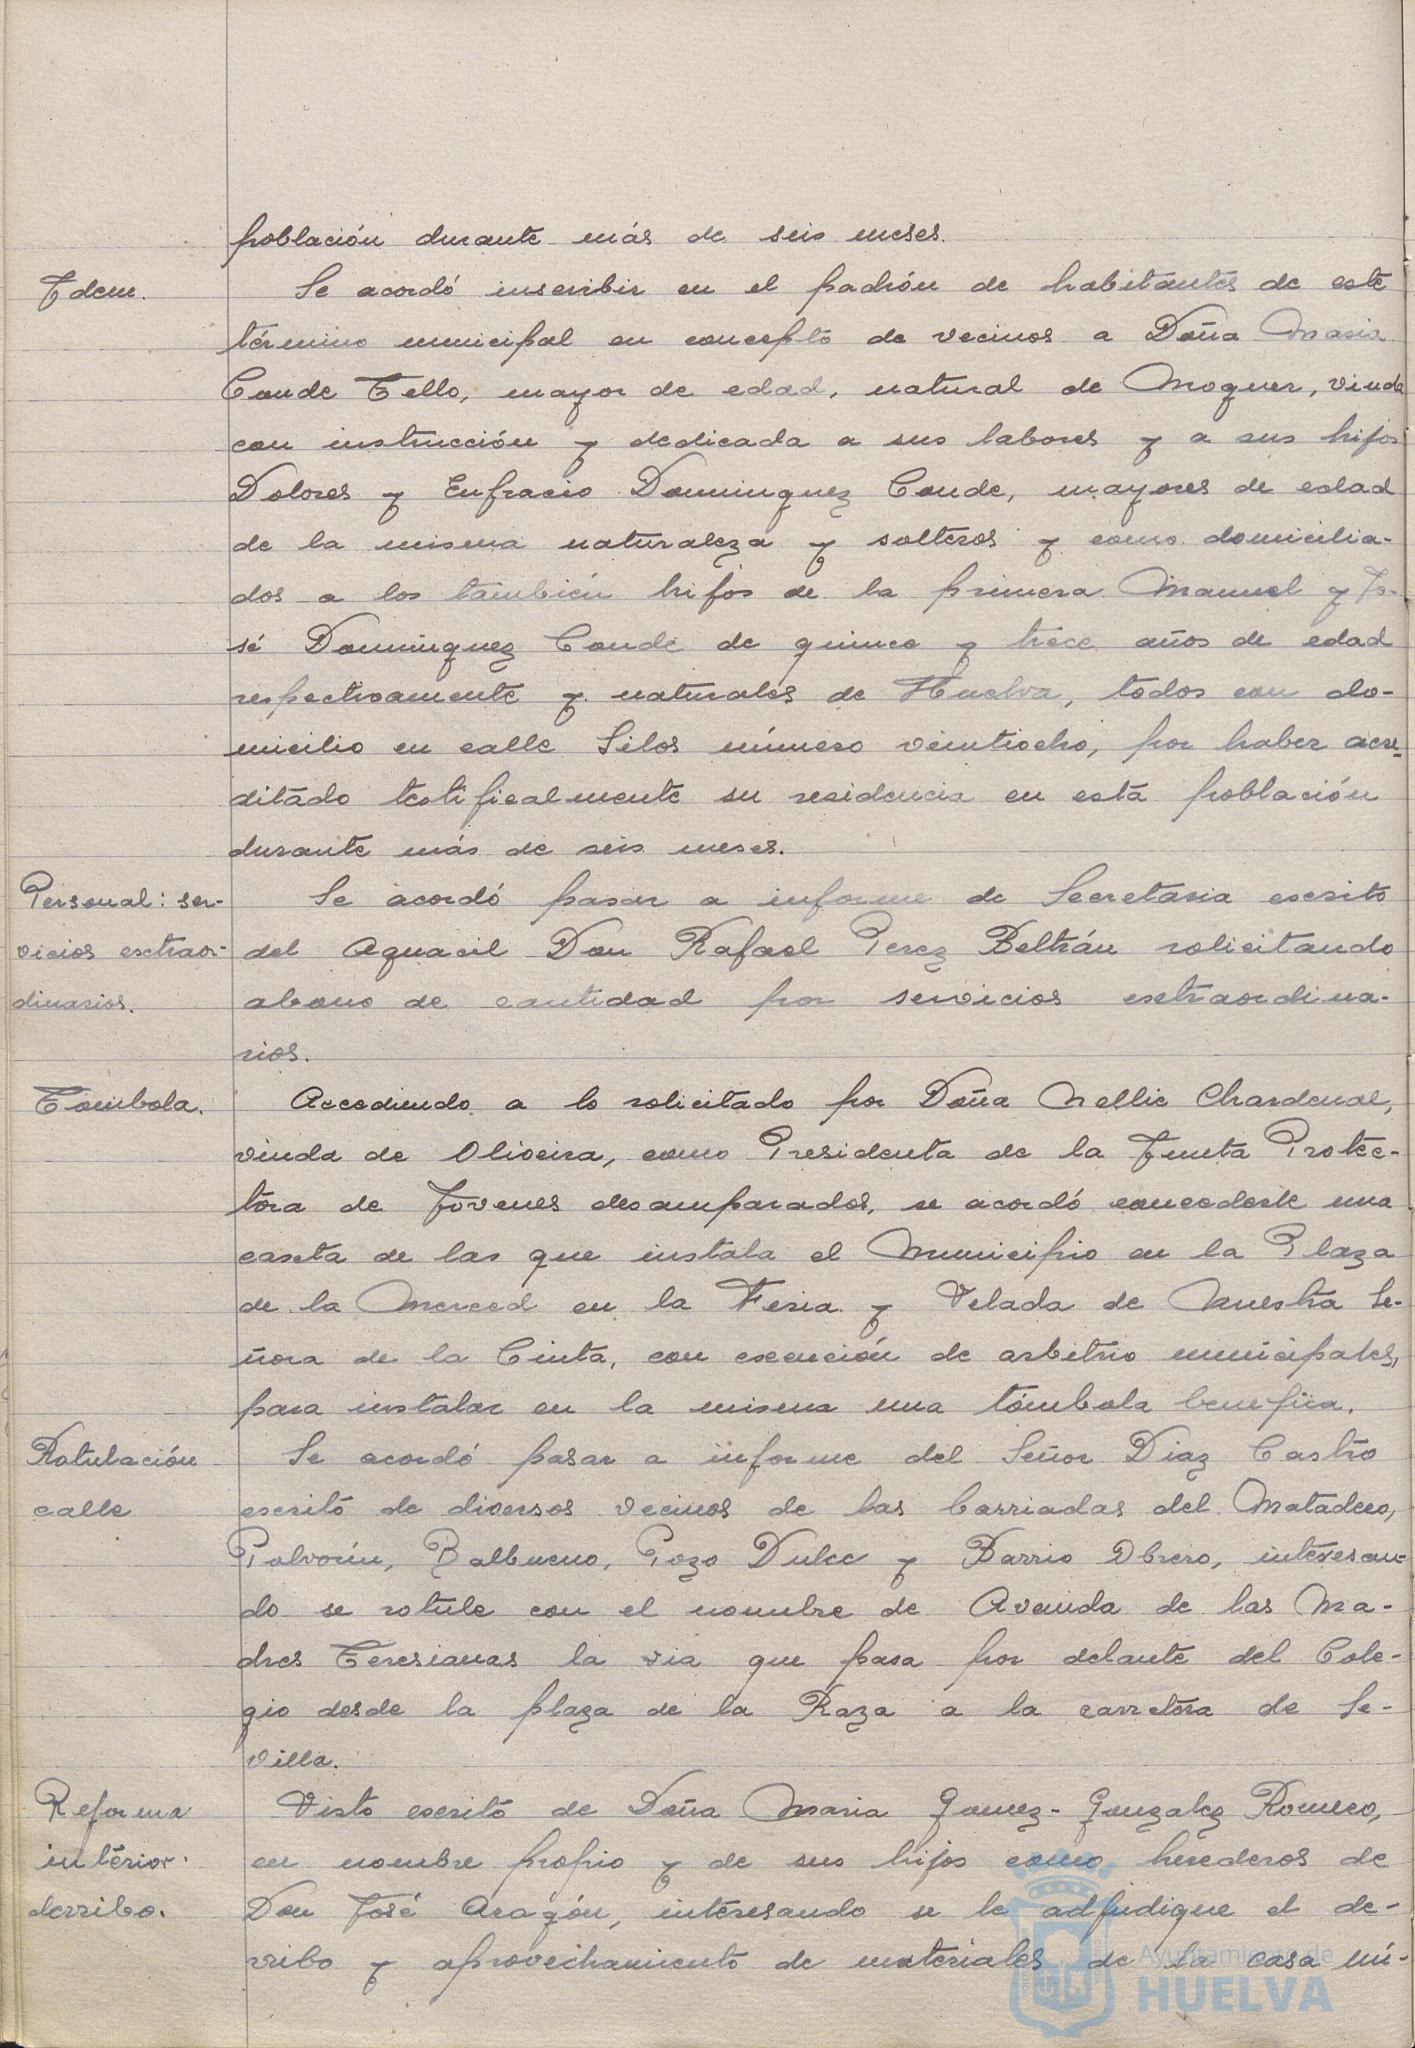 población durante más de seis meses.
Idem.
Se acordó inscribir en el padrón de habitantes de este
término municipal en concepto de vecinos a Doña Maria
Conde Tello, mayor de edad, natural de Moguer, viuda
con instrucción y dedicada a sus labores y a sus hijos
Dolores y Eufracio Dominguez Conde, mayores de edad
de la misma naturaleza y solteros y como domicilia-
dos a los también hijos de la primera Manuel y Jo-
sé Dominguez Conde de quince y trece años de edad
respectivamente y naturales de Huelva, todos con do-
micilio en calle Silos número veintiocho, por haber acre-
ditado testificalmente su residencia en esta población
durante más de seis meses.
Personal: ser-
vicios extraor-
dinarios.
Se acordó pasar a informe de Secretaria escrito
del Aguacil Don Rafael Perez Beltrán solicitando
abono de cantidad por servicios extraordina-
rios.
Tombola.
Accediendo a lo solicitado por Doña Nellie Chardenal,
viuda de Oliveira, como Presidenta de la Junta Protec-
tora de Jóvenes desamparados, se acordó concederle una
caseta de las que instala el Municipio en la Plaza
de la Merced en la Feria y Velada de Nuestra Se-
ñora de la Cinta, con exención de arbitrio municipales,
para instalar en la misma una tómbola benefica.
Rotulación
calle
Se acordó pasar a informe del Señor Diaz Castro
escrito de diversos vecinos de las barriadas del Matadero,
Polvorín, Balbueno, Pozo Dulce y Barrio Obrero, interesan-
do se rotule con el nombre de Avenida de las Ma-
dres Teresianas la via que pasa por delante del Cole-
gio desde la plaza de la Raza a la carretera de Se-
villa.
Reforma
interior.
derribo.
Visto escrito de Doña Maria Gomez-Gonzalez Romero,
en nombre propio y de sus hijos como herederos de
Don José Aragón, interesando se le adjudique el de-
rribo y aprovechamiento de materiales de la casa nú-
Ayuntamiento de
HUELVA